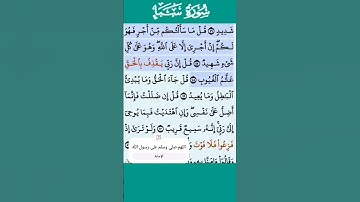 سورة سبإ
شَدِيدٍ ۝ قُلْ مَا سَأَلْتُكُم مِّنْ أَجْرٍ فَهُوَ
لَكُمْ ۖ إِنْ أَجْرِيَ إِلَّا عَلَى اللَّهِ ۖ وَهُوَ عَلَىٰ كُلِّ
شَيْءٍ شَهِيدٌ ۝ قُلْ إِنَّ رَبِّي يَقْذِفُ بِالْحَقِّ
عَلَّامُ الْغُيُوبِ ۝ قُلْ جَاءَ الْحَقُّ وَمَا يُبْدِئُ
الْبَاطِلُ وَمَا يُعِيدُ ۝ قُلْ إِن ضَلَلْتُ فَإِنَّمَا
أَضِلُّ عَلَىٰ نَفْسِي ۖ وَإِنِ اهْتَدَيْتُ فَبِمَا يُوحِي
إِلَيَّ رَبِّي ۚ إِنَّهُ سَمِيعٌ قَرِيبٌ ۝ وَلَوْ تَرَىٰ إِذْ
فَزِعُوا فَلَا فَوْتَ
اللهم صلي وسلم على رسول الله
وَقَالُوا آمَنَّا بِهِ